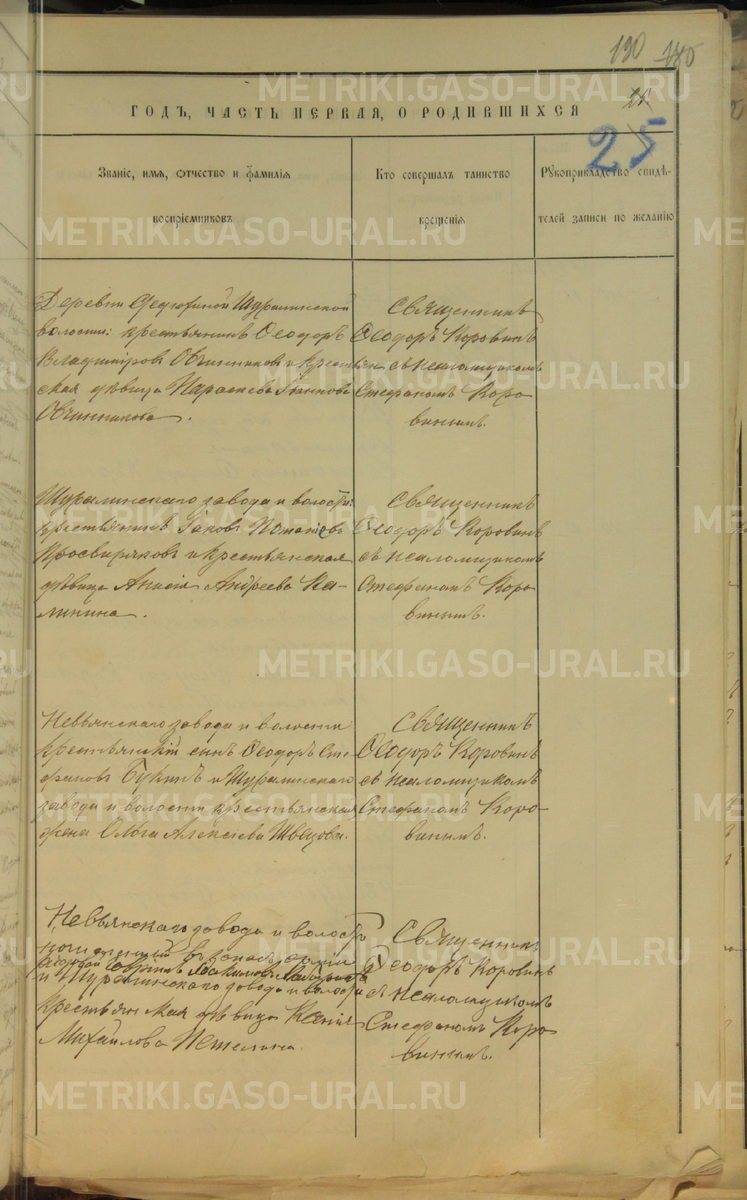 190 180
ГОДЪ, ЧАСТЬ ПЕРВАЯ, О РОДИВШИХСЯ
25
25
Званіе, имя, отчество и фамилія
воспріемниковъ
Кто совершалъ таинство
крещенія
Рукоприкладство свидѣ-
телей записи по желанію
Деревни Федюниной Шуралинской
волости: крестьянинъ Ѳеодоръ
Владиміровъ Овчинниковъ и крестьян
ская дѣвица Параскева
Овчинникова.
Священникъ
Ѳеодоръ Коровинъ
съ псаломщикомъ
Стефаномъ Коро
винымъ.
Шуралинскаго завода и волости:
крестьянинъ Іаковъ Потапіевъ
Просвиряковъ и крестьянская
дѣвица Анисія Андреева Ка-
линина.
Священникъ
Ѳеодоръ Коровинъ
съ псаломщикомъ
Стефаномъ Коро
винымъ.
Невьянскаго завода и волости
крестьянскій сынъ Ѳеодоръ Сте
фановъ и Шуралинскаго
завода и волости крестьянская
жена Ольга Алексіева Швецова.
Священникъ
Ѳеодоръ Коровинъ
съ псаломщикомъ
Стефаномъ Коро-
винымъ.
Невьянскаго завода и волости
въ запасѣ арміи
и Шуралинскаго завода и волости
крестьянская дѣвица Ксенія
Михайлова Петелина.
Священникъ
Ѳеодоръ Коровинъ
съ псаломщикомъ
Стефаномъ Коро
винымъ.
METRIKI.GASO-URAL.RU
METRIKI.GASO-URAL.RU
METRIKI.GASO-URAL.RU
METRIKI.GASO-URAL.RU
METRIKI.GASO-URAL.RU
METRIKI.GASO-URAL.RU
METRIKI.GASO-URAL.RU
METRIKI.GASO-URAL.RU